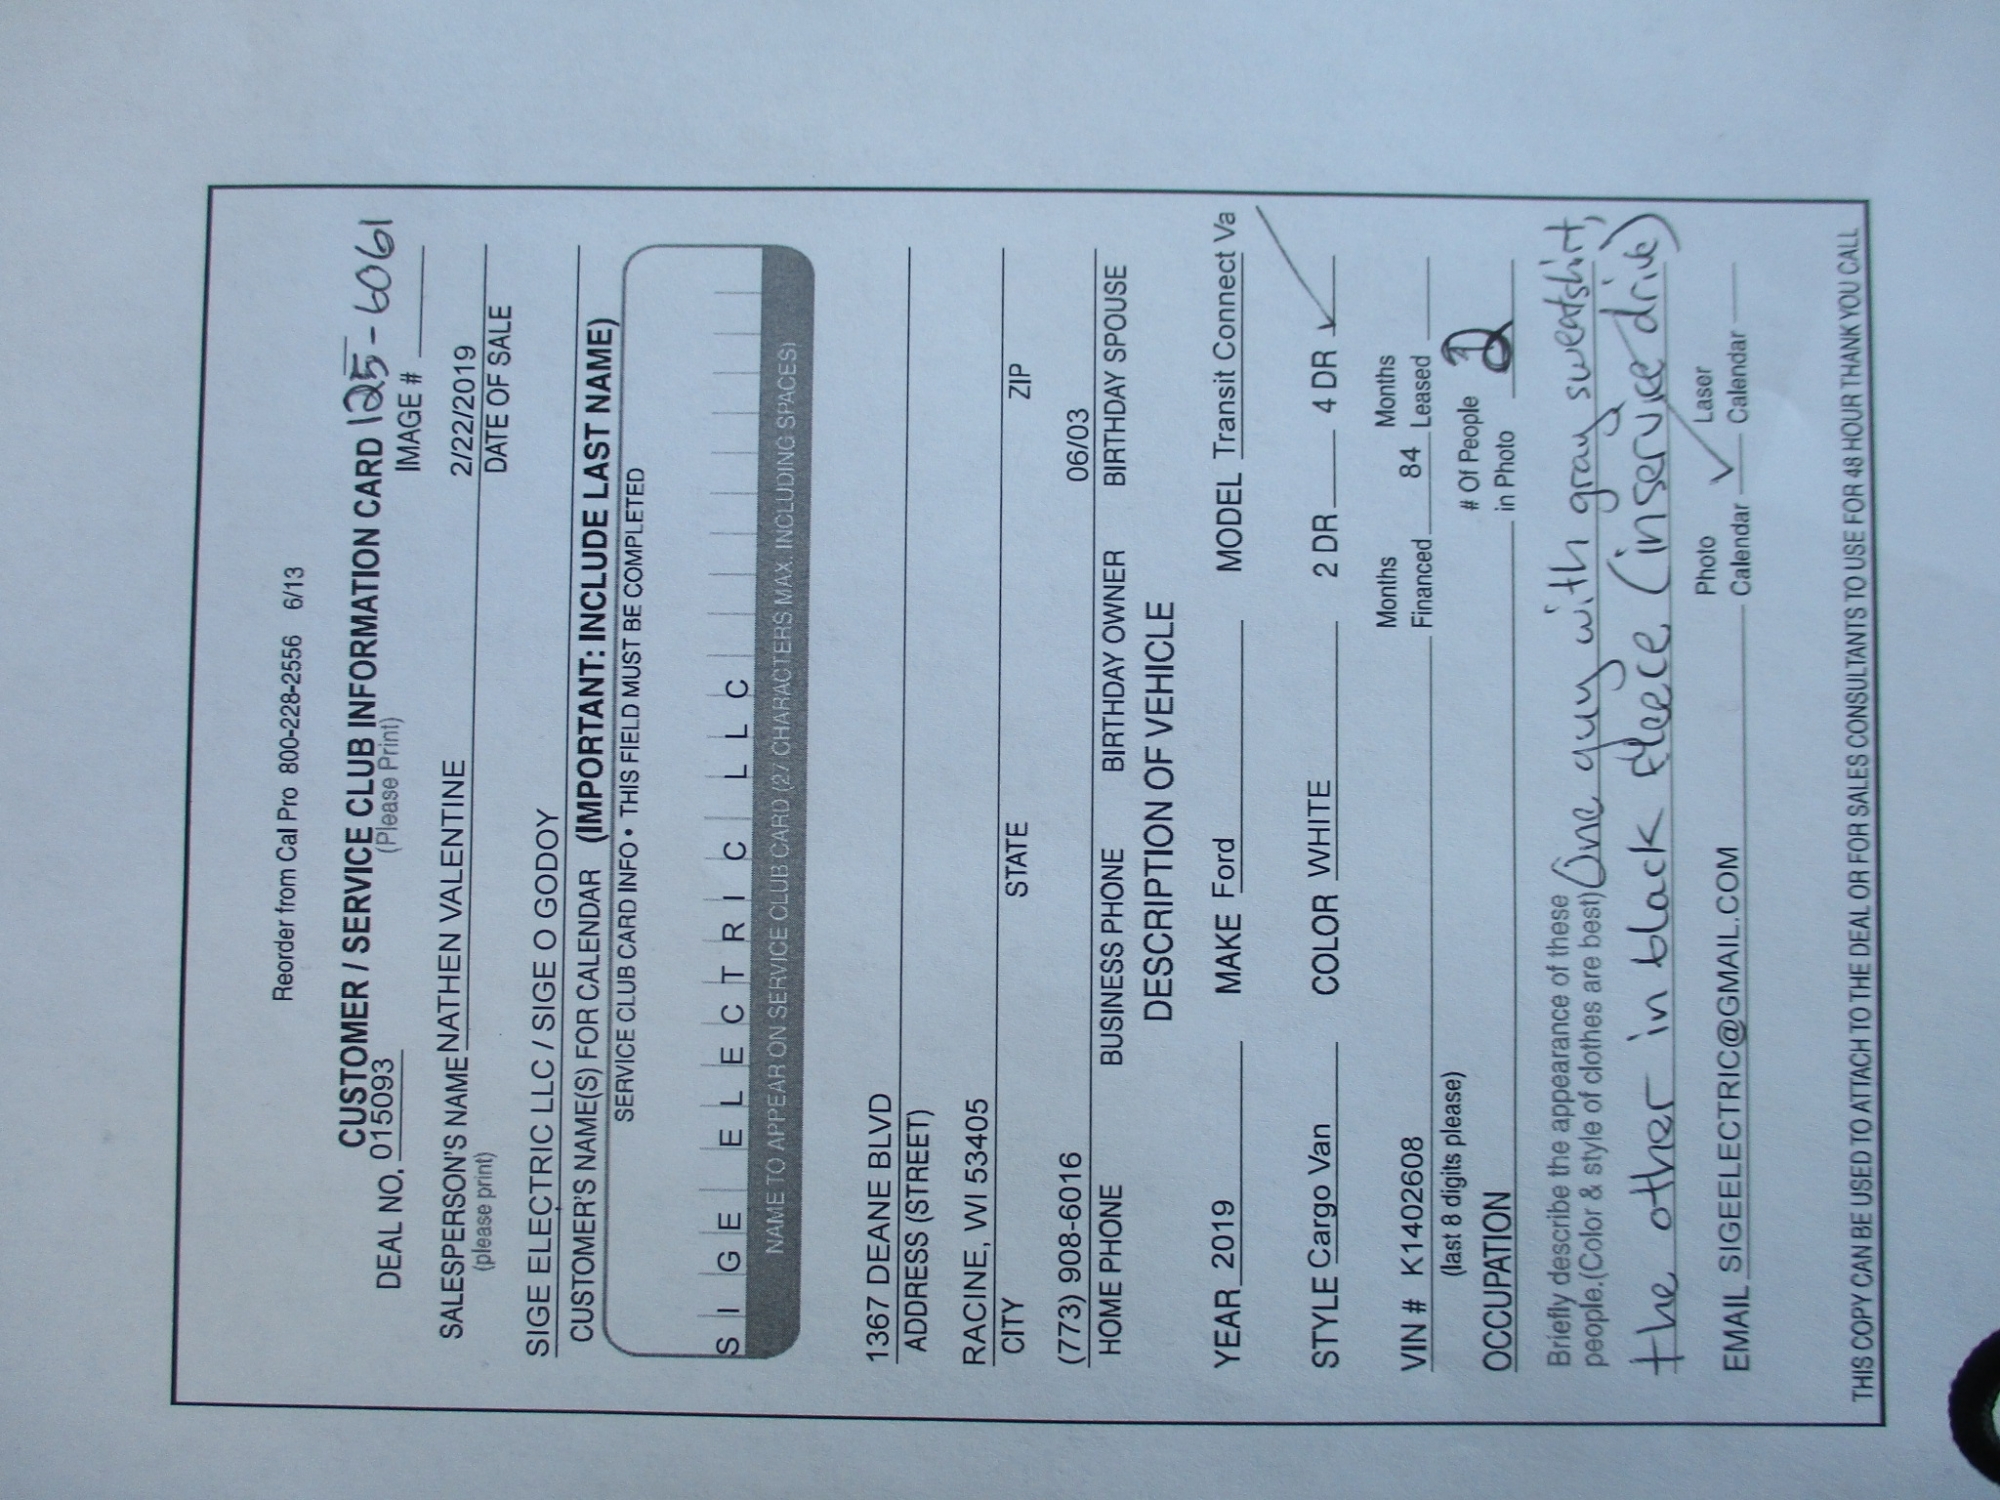 Reorder from Cal Pro 800-228-2556 6/13
CUSTOMER / SERVICE CLUB INFORMATION CARD 125-6061
(Please Print)
DEAL NO. 015093 IMAGE #
SALESPERSON'S NAME NATHEN VALENTINE 2/22/2019
(please print) DATE OF SALE
SIGE ELECTRIC LLC / SIGE O GODOY
CUSTOMER'S NAME(S) FOR CALENDAR (IMPORTANT: INCLUDE LAST NAME)
SERVICE CLUB CARD INFO • THIS FIELD MUST BE COMPLETED
SIGE ELECTRIC LLC
NAME TO APPEAR ON SERVICE CLUB CARD (27 CHARACTERS MAX. INCLUDING SPACES)
1367 DEANE BLVD
ADDRESS (STREET)
RACINE, WI 53405
CITY STATE ZIP
(773) 908-6016 06/03
HOME PHONE BUSINESS PHONE BIRTHDAY OWNER BIRTHDAY SPOUSE
DESCRIPTION OF VEHICLE
YEAR 2019 MAKE Ford MODEL Transit Connect Va
STYLE Cargo Van COLOR WHITE 2 DR 4 DR ✓
Months Months
VIN # K1402608 Financed 84 Leased
(last 8 digits please) # Of People
OCCUPATION in Photo 2
Briefly describe the appearance of these
people.(Color & style of clothes are best) One guy with gray sweatshirt,
the other in black fleece (in service drive)
Photo Laser
EMAIL SIGEELECTRIC@GMAIL.COM Calendar ✓ Calendar
THIS COPY CAN BE USED TO ATTACH TO THE DEAL OR FOR SALES CONSULTANTS TO USE FOR 48 HOUR THANK YOU CALL